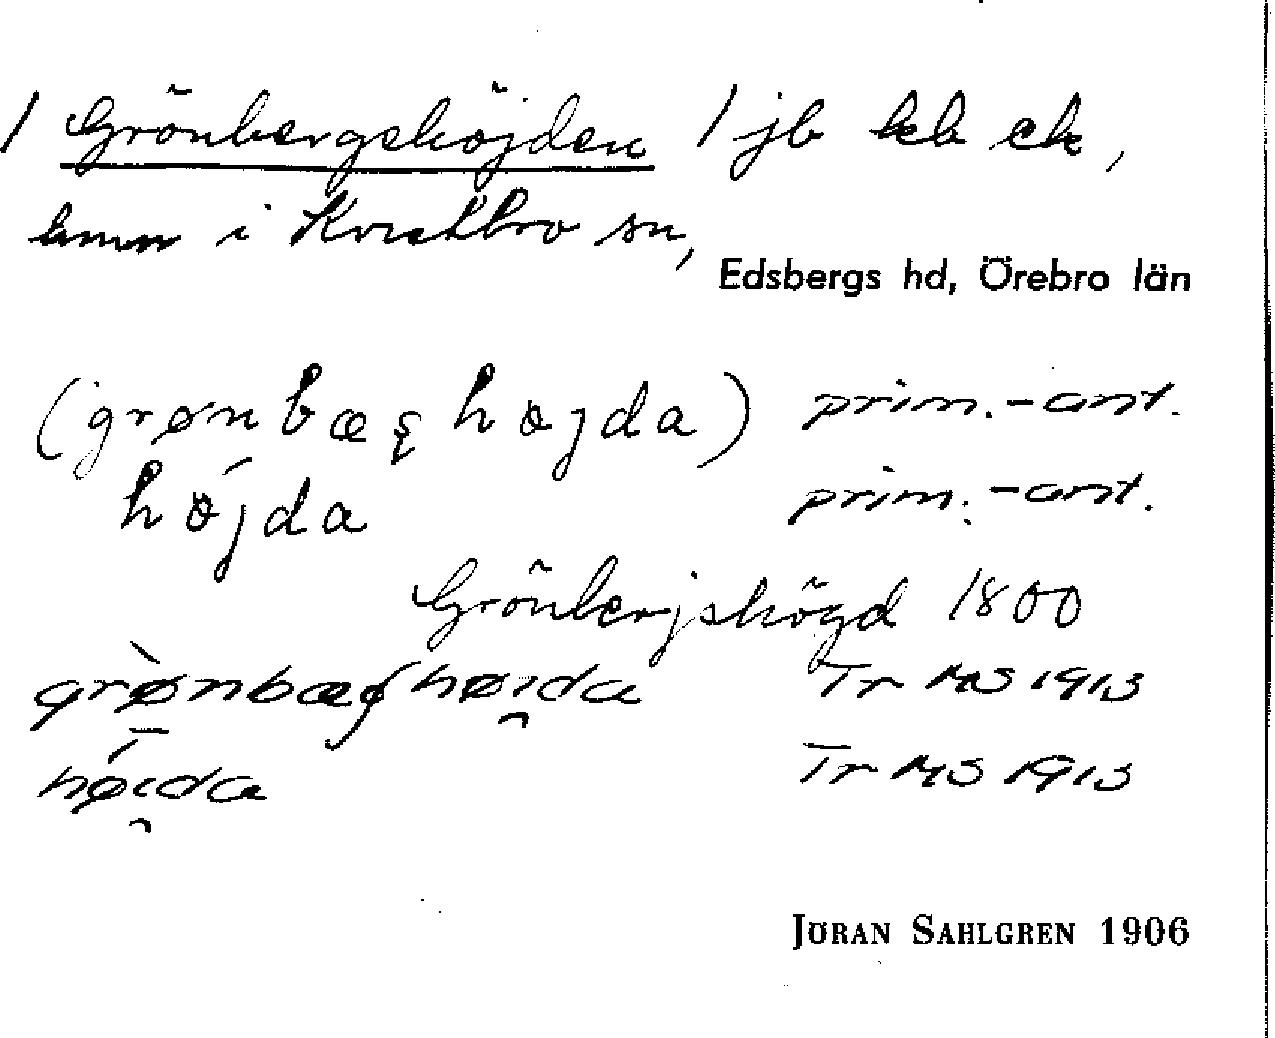 / Grönbergshöjden / jb kb ek,
hmn i Kvistbro sn,
Edsbergs hd, Örebro län
(grønbæʂhøjda) prim.-ant.
højda prim.-ant.
Grönberjshögd 1800
grønbæʂhøi̯da Tr MS 1913
høi̯da Tr MS 1913
JÖRAN SAHLGREN 1906